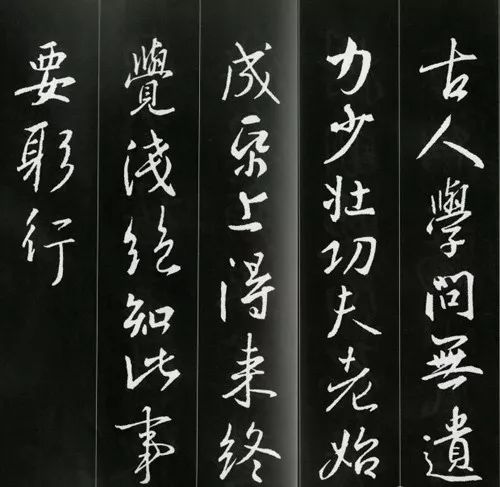 古人學問無遺
力少壯功夫老始
成帋上得来終
覺淺絶知此事
要躬行